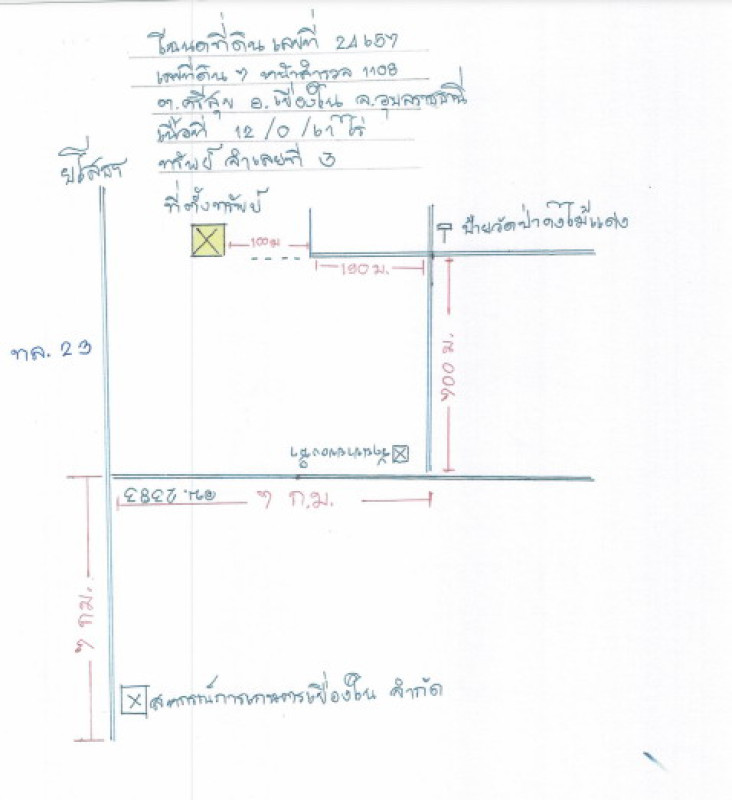 โฉนดที่ดิน เลขที่ 24657
เลขที่ดิน 7 หน้าสำรวจ 1108
ต.ศรีสุข อ.เขื่องใน จ.อุบลราชธานี
เนื้อที่ 12/0/67 ไร่
ทรัพย์ ลำดับที่ 3
ยโสธร
ที่ตั้งทรัพย์
ป้ายวัดป่าดงไม้แดง
100 ม
180 ม.
ทล. 23
700 ม.
2383
7 ก.ม.
7 กม.
สหกรณ์การเกษตรเขื่องใน จำกัด